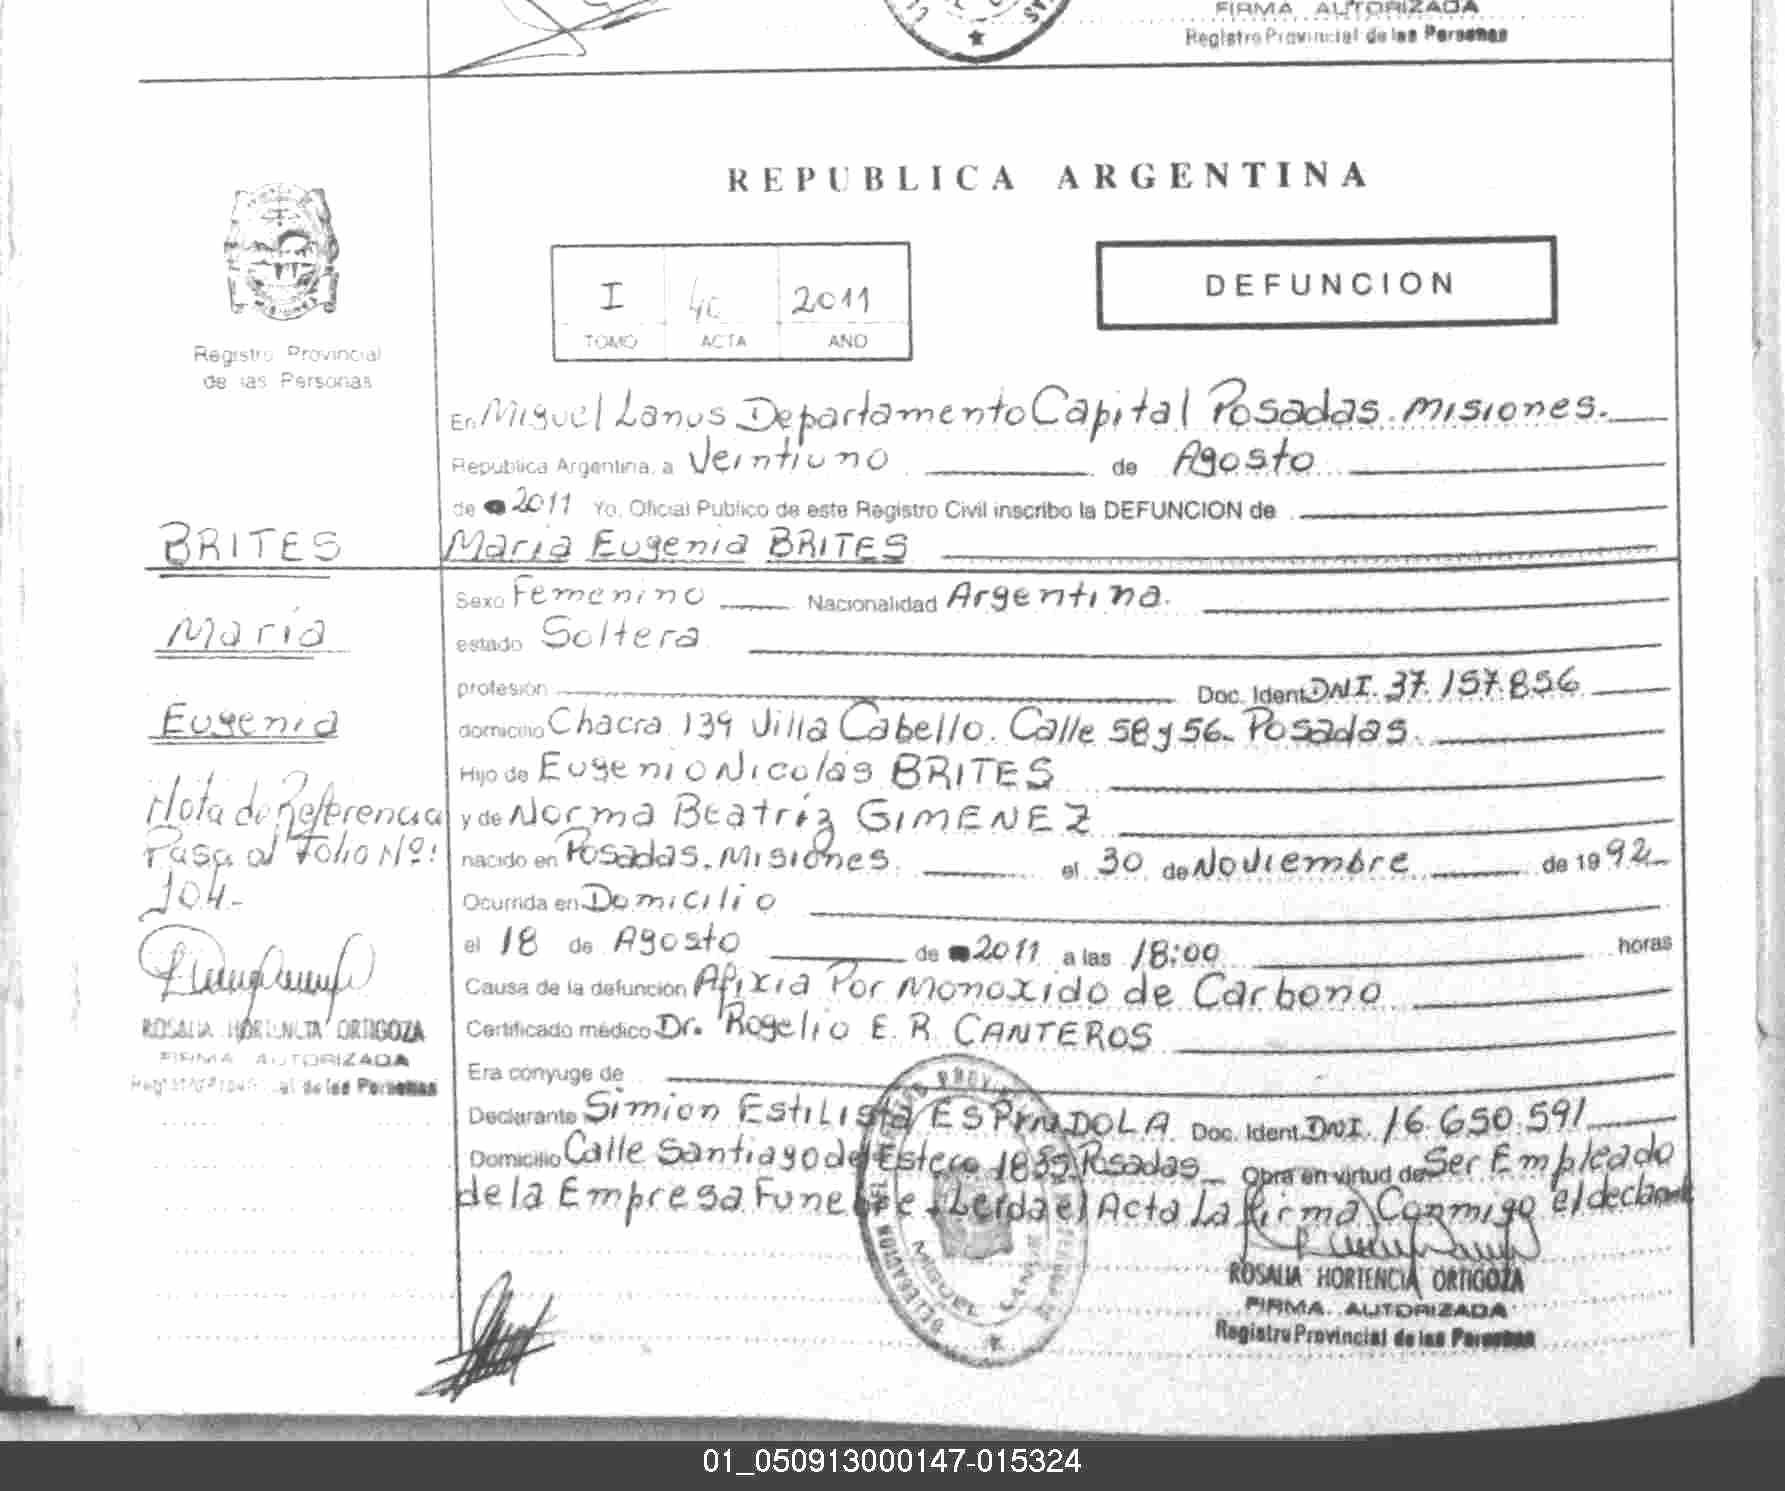 FIRMA AUTORIZADA
Registro Provincial de las Personas
REPUBLICA ARGENTINA
DEFUNCION
I 2011
TOMO ACTA AÑO
Registro Provincial
de las Personas
En Miguel Lanus Departamento Capital Posadas. Misiones.
Republica Argentina, a Veintiuno de Agosto
de 2011 Yo, Oficial Publico de este Registro Civil inscribo la DEFUNCION de
BRITES
María Eugenia BRITES
Sexo Femenino Nacionalidad Argentina.
María
estado Soltera
profesión Doc. Ident. DNI. 37.157.856
Eugenia
domicilio Chacra 139 Villa Cabello. Calle 58 y 56. Posadas.
Hijo de Eugenio Nicolás BRITES
Nota de Referencia
y de Norma Beatríz GIMENEZ
Pasa al Folio Nº:
nacido en Posadas, Misiones. el 30 de Noviembre de 1992
104.-
Ocurrida en Domicilio
el 18 de Agosto de 2011 a las 18:00 horas
Causa de la defunción Afixia Por Monoxido de Carbono
ROSALIA HORTENCIA ORTIGOZA
FIRMA AUTORIZADA
Registro Provincial de las Personas
Certificado médico Dr. Rogelio E. R. CANTEROS
Era conyuge de
Declarante Simion Estilista ESPINDOLA Doc. Ident. DNI. 16.650.591
Domicilio Calle Santiago del Estero 1835 Posadas Obra en virtud de Ser Empleado
de la Empresa Funebre. Leida el Acta La firma Conmigo el declarante
DELEGACION MIGUEL LANUS
ROSALIA HORTENCIA ORTIGOZA
FIRMA AUTORIZADA
Registro Provincial de las Personas
01_050913000147-015324